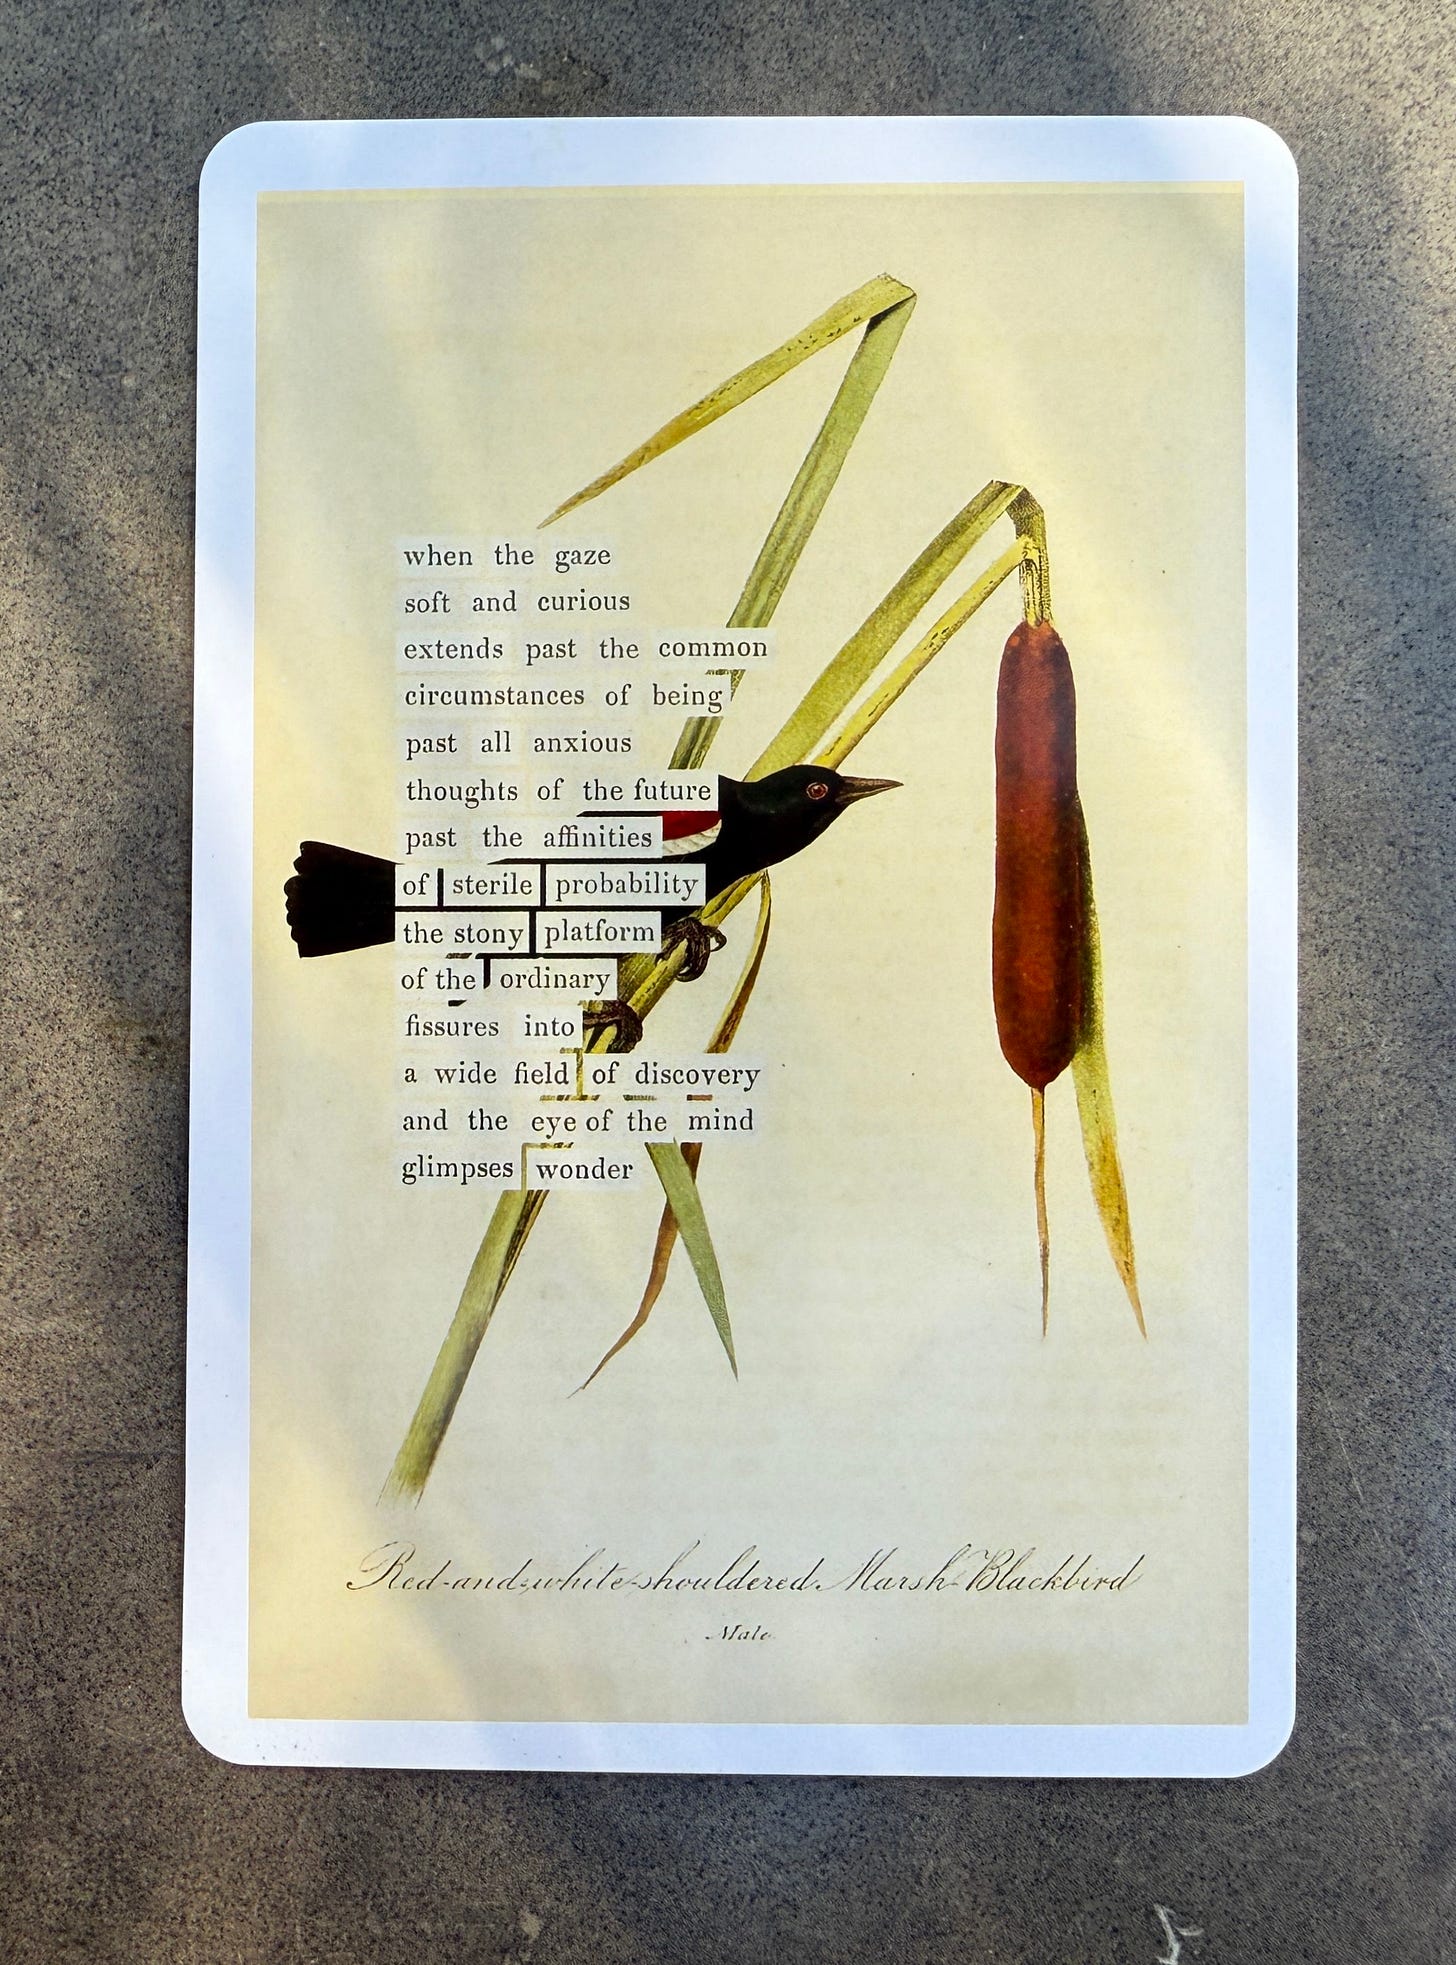 when the gaze
soft and curious
extends past the common
circumstances of being
past all anxious
thoughts of the future
past the affinities
of sterile probability
the stony platform
of the ordinary
fissures into
a wide field of discovery
and the eye of the mind
glimpses wonder
Red-and-white-shouldered Marsh Blackbird
Male